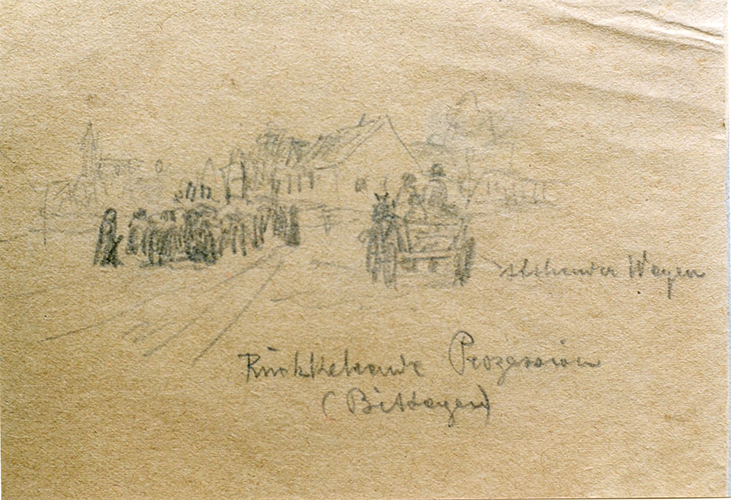 stehender Wagen
Rückkehrende Prozession
(Bittagen)